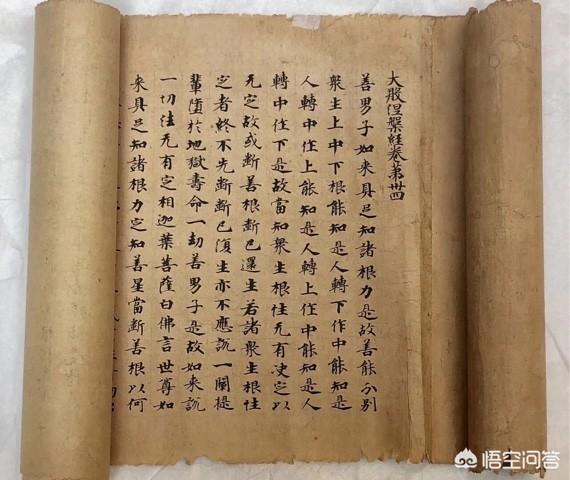 大般涅槃經卷第卅四
善男子如来具足知諸根力是故善能分別
衆生上中下根能知是人轉下作中能知是
人轉中作上能知是人轉上作中能知是人
轉中作下是故當知衆生根性无有决定以
无定故或断善根断已還生若諸衆生根性
定者終不先断断已復生亦不應説一闡提
輩墮於地獄壽命一劫善男子是故如来説
一切法无有定相迦葉菩薩白佛言世尊如
来具足知諸根力定知善星當断善根以何
悟空问答